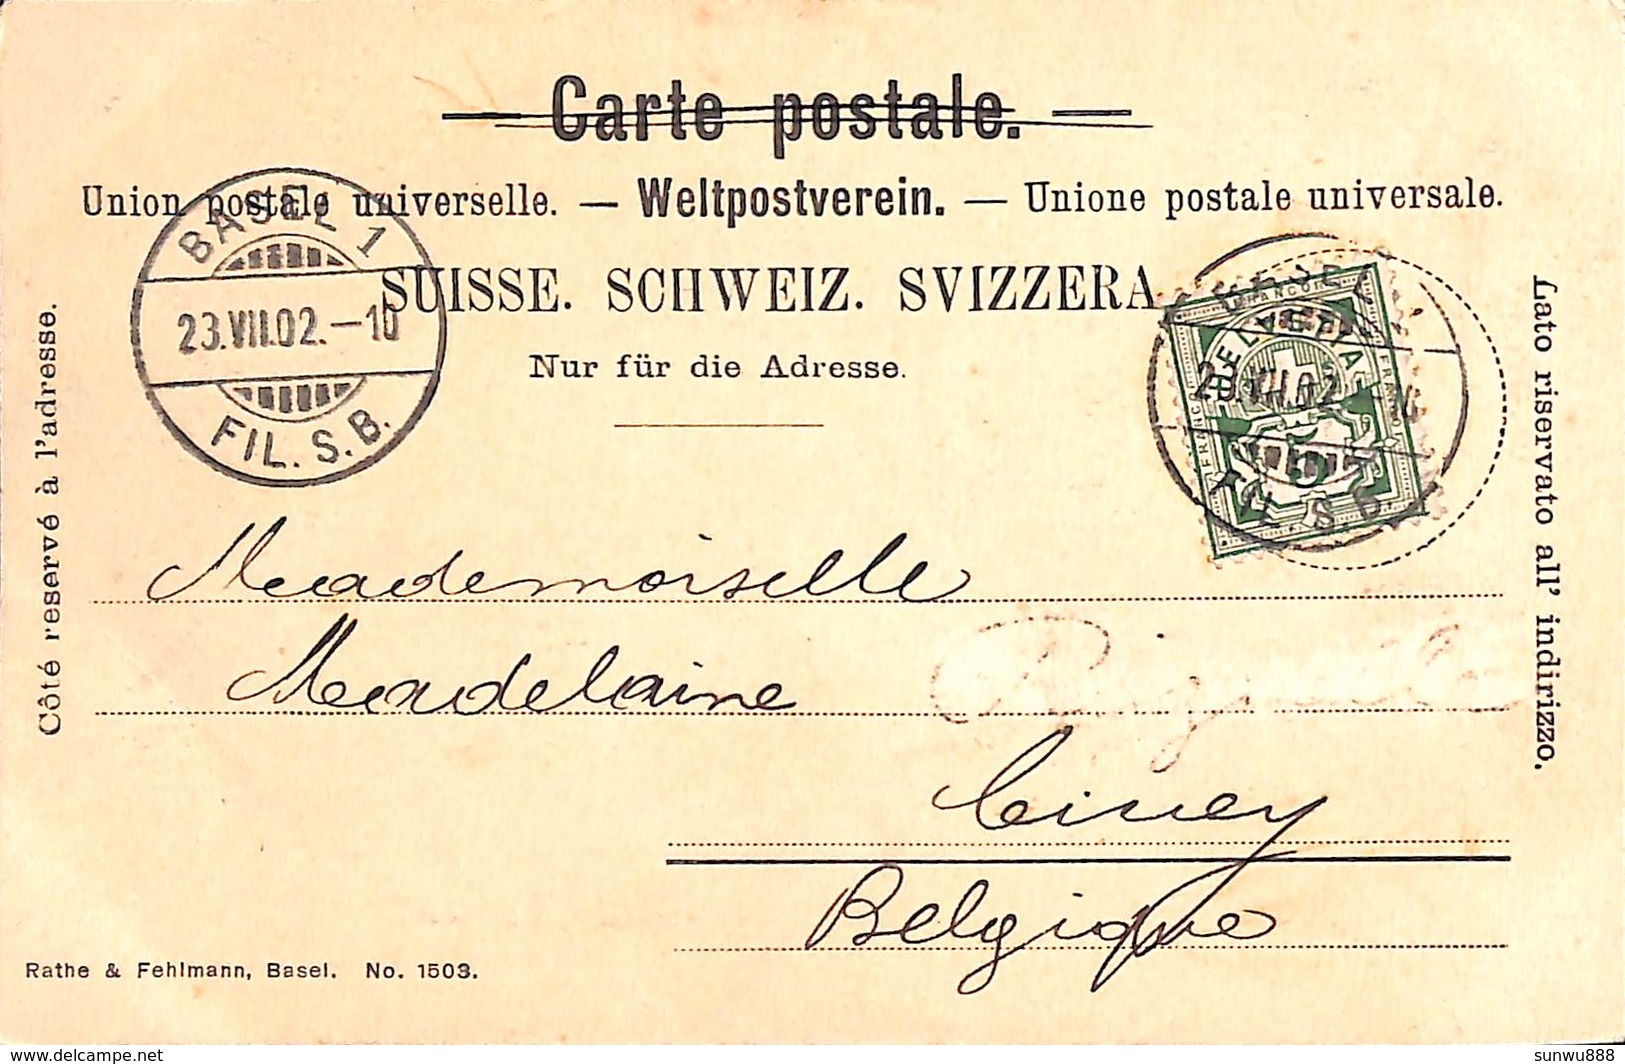 Carte postale.
Union postale universelle. — Weltpostverein. — Unione postale universale.
SUISSE. SCHWEIZ. SVIZZERA.
Nur für die Adresse.
BASEL 1
23.VII.02.–10
FIL. S. B.
FRANCO
HELVETIA
FRANCO
FRANCO
5
VII.02
FIL. S.B.
Côté reservé à l'adresse.
Lato riservato all' indirizzo.
Mademoiselle
Madelaine
Ciney
Belgique
Rathe & Fehlmann, Basel. No. 1503.
delcampe.net
sunwu888